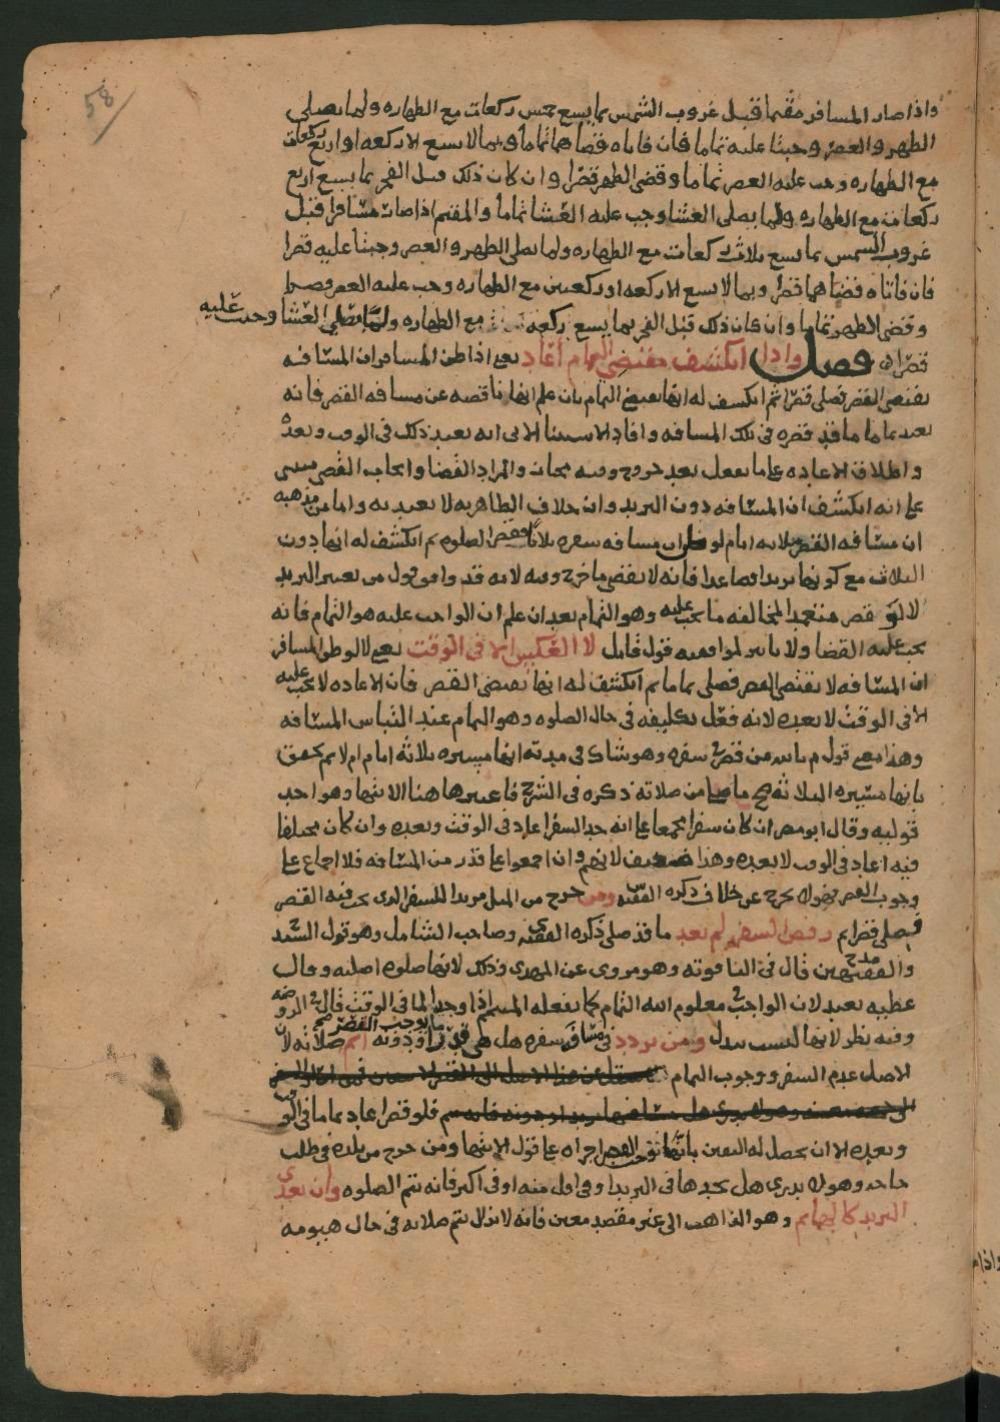 58
واذا صار المسافر مقيما قبل غروب الشمس بما يسع خمس ركعات مع الطهاره ولما يصلي
الظهر والعصر وجبتا عليه تماما فان فاتاه قضاهما تماما وبما لا يسع الا ركعه او اربع ركعات
مع الطهاره وجب عليه العصر تماما وقضى الظهر قصرا وان كان ذلك قبل الفجر بما يسع اربع
ركعات مع الطهاره ولما يصلي العشا وجب عليه العشا تماما والمقيم اذا صار مسافرا قبل
غروب الشمس بما يسع ثلاث ركعات مع الطهاره ولما يصلي الظهر والعصر وجبتا عليه قصرا
فان فاتاه قضاهما قصرا وبما لا يسع الا ركعه او ركعتين مع الطهاره وجب عليه العصر قصرا
وقضى الظهر تماما وان كان ذلك قبل الفجر بما يسع ركعه مع الطهاره ولما يصلي العشا وجبت عليه
قصرا فصل واذا انكشف مقتضي التمام اعاد يعني اذا ظن المسافر ان المسافه
تقتضي القصر فصلى قصرا ثم انكشف له انها تقتضي التمام بان علم انها ناقصه عن مسافه القصر فانه
يعيد تماما ما قد قصره في تلك المسافه وافاد الاستثنا الاتي انه يعيد ذلك في الوقت وبعده
واطلاق الاعاده على ما يفعل بعد خروج وقته مجاز والمراد القضا وايجاب القضى مبني
على انه انكشف ان المسافه دون البريد وان خلاف الظاهريه لا يعتد به واما من مذهبه
ان مسافه القصر ثلاثه ايام لو ظن ان مسافه سفره ثلاثا فقصر الصلوه ثم انكشف له انها دون
الثلاث مع كونها بريدا فصاعدا فانه لا يقضي ما خرج وقته لانه قد وافق قول من يعتبر البريد
لا لو قصر متعمدا لمخالفه ما يجب عليه وهو التمام بعد ان علم ان الواجب عليه هو التمام فانه
يجب عليه القضا ولا تاثير لموافقته قول قايل لا العكس الا في الوقت يعني لا لو ظن المسافر
ان المسافه لا تقتضي القصر فصلى تماما ثم انكشف له انها تقتضي القصر فان الاعاده لا تجب عليه
الا في الوقت لا بعده لانه فعل تكليفه في حال الصلوه وهو التمام عند التباس المسافه
وهذا معنى قول م بالله من قصر في سفره وهو شاك في مدته انها مسيره ثلاثه ايام ام لا ثم تحقق
بانها مسيره الثلاثه صح ما صلى من صلاته ذكره في الشرح فاعتبر هاهنا الانتها وهو احد
قوليه وقال ابو مضر ان كان سفرا مجمعا على انه حد السفر اعاد في الوقت وبعده وان كان مختلفا
فيه اعاد في الوقت لا بعده وهذا ضعيف لانهم وان اجمعوا على قدر من المسافه فلا اجماع على
وجوب القصر فهو لا يخرج عن خلاف ذكره الفقيه ومن خرج من الميل مريدا للسفر الذي يجب فيه القصر
فصلى قصرا ثم رفض السفر لم يعد ما قد صلى ذكره الفقيه وصاحب الشامل وهو قول السيد
والفقيه مدحج قال في الياقوته وهو مروي عن المهدي وذلك لانها صلوه اصليه وقال
عطيه يعيد لان الواجب في معلوم الله التمام كما يفعله المتيمم اذا وجد الما في الوقت قال في الروضه
وفيه نظر لانها ليست ببدل ومن تردد في مسافه سفره هل هي قدر ما يوجب القصر او دونه اتم صلاته لان
الاصل عدم السفر ووجوب التمام
فلو قصر اعاد تماما في الوقت
وبعده الا ان يحصل له اليقين بانها توجب القصر اجزاه على قول الانتها ومن خرج من بلده في طلب
حاجه وهو لا يدري هل يجدها في البريد او في اقل منه او في اكثر فانه يتم الصلوه وان تعدى
البريد كالهايم وهو الذاهب الى غير مقصد معين فانه لا يزال يتم صلاته في حال هيومه